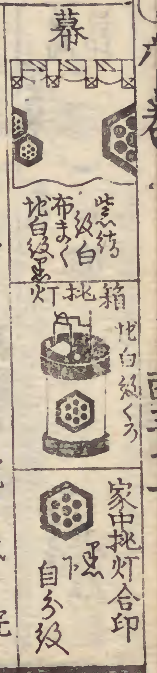 幕
紫絹
紋白
布まく
地白紋黒
箱挑灯
地白紋くろ
家中挑灯合印
黒
下
自分紋